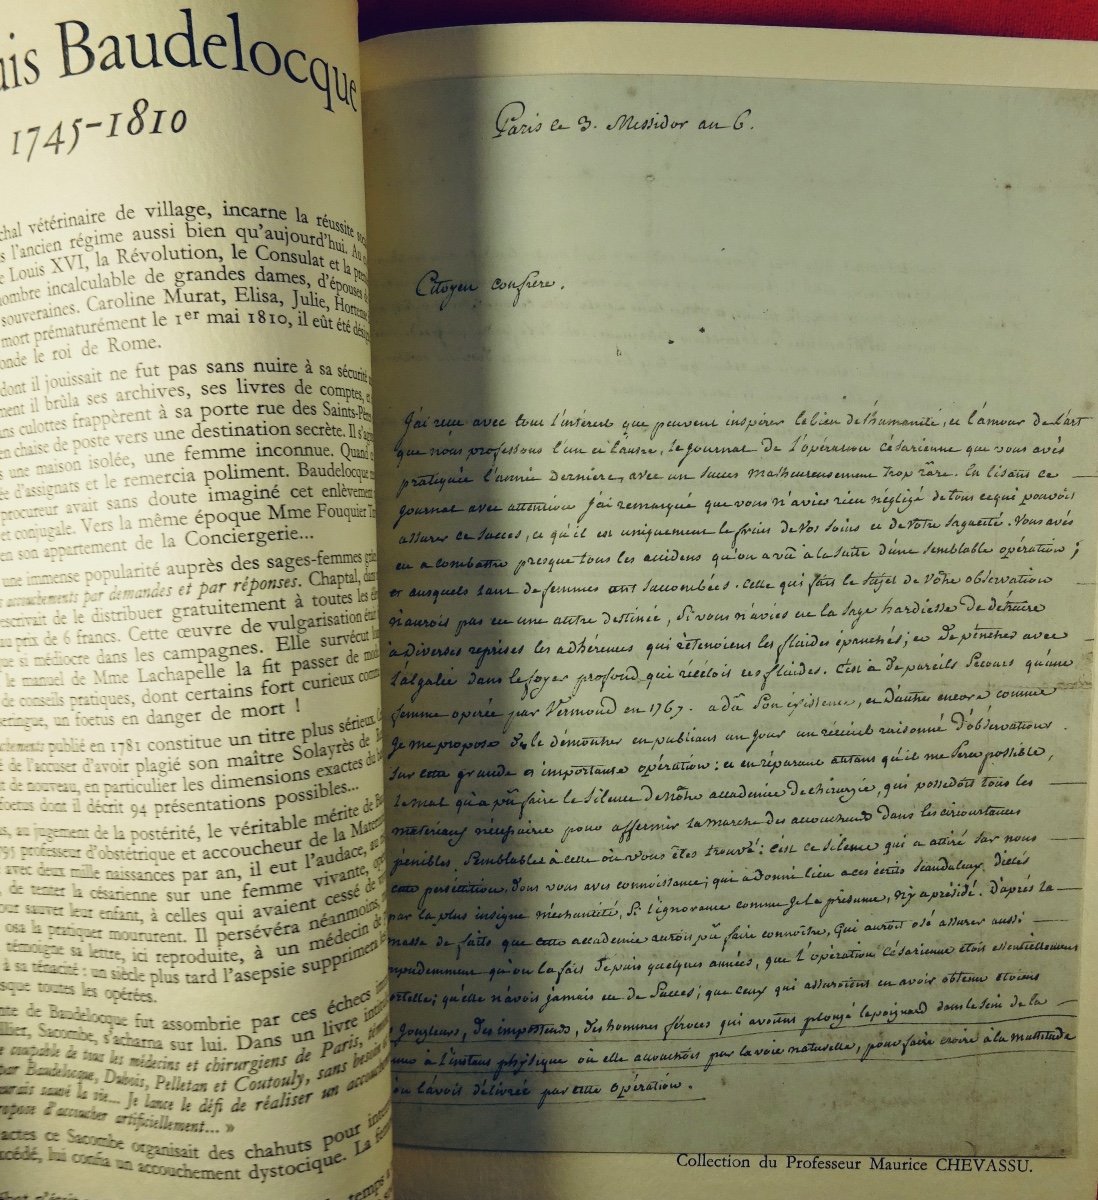 uis Baudelocque
1745-1810
chal vétérinaire de village, incarne la réussite
s l'ancien régime aussi bien qu'aujourd'hui. Au
e Louis XVI, la Révolution, le Consulat et la
nombre incalculable de grandes dames, d'épouses
souveraines. Caroline Murat, Elisa, Julie, Hortense,
mort prématurément le 1er mai 1810, il eût été
onde le roi de Rome.
dont il jouissait ne fut pas sans nuire à sa sécurité
ment il brûla ses archives, ses livres de comptes,
ans culottes frappèrent à sa porte rue des Saints-Pères
en chaise de poste vers une destination secrète. Il
s une maison isolée, une femme inconnue. Quand
ée d'assignats et le remercia poliment. Baudelocque
procureur avait sans doute imaginé cet enlèvement
et conjugale. Vers la même époque Mme Fouquier
en son appartement de la Conciergerie...
une immense popularité auprès des sages-femmes
accouchements par demandes et par réponses. Chaptal,
escrivait de le distribuer gratuitement à toutes les
au prix de 6 francs. Cette œuvre de vulgarisation était
que si médiocre dans les campagnes. Elle survécut
le manuel de Mme Lachapelle la fit passer de
de conseils pratiques, dont certains fort curieux
seringue, un foetus en danger de mort !
chements publié en 1781 constitue un titre plus sérieux.
é de l'accuser d'avoir plagié son maître Solayrès de
t de nouveau, en particulier les dimensions exactes du
foetus dont il décrit 94 présentations possibles...
us, au jugement de la postérité, le véritable mérite de
795 professeur d'obstétrique et accoucheur de la
avec deux mille naissances par an, il eut l'audace, au
, de tenter la césarienne sur une femme vivante,
our sauver leur enfant, à celles qui avaient cessé de
osa la pratiquer moururent. Il persévéra néanmoins,
témoigne sa lettre, ici reproduite, à un médecin de
à sa ténacité : un siècle plus tard l'asepsie supprimera
sque toutes les opérées.
nte de Baudelocque fut assombrie par ces échecs
llier, Sacombe, s'acharna sur lui. Dans un livre
e coupable de tous les médecins et chirurgiens de Paris,
par Baudelocque, Dubois, Pelletan et Coutouly, sans besoin
aurais sauvé la vie... Je lance le défi de réaliser un
ropose d'accoucher artificiellement... »
actes ce Sacombe organisait des chahuts pour
océdé, lui confia un accouchement dystocique. La
temps
Paris ce 3. Messidor an 6.
Citoyen confrère.
J'ai reçu avec tout l'intérêt que peuvent inspirer le bien de l'humanité, et l'amour de l'art
que nous professons l'un et l'autre, le journal de l'opération césarienne que vous avés
pratiquée l'année dernière, avec un succès malheureusement trop râre. En lisant ce
journal avec attention j'ai remarqué que vous n'aviés rien négligé de tout ce qui pouvoit
assurer ce succès, et qu'il est uniquement le fruit de vos soins et de votre sagacité. Vous avés
eu à combattre presque tous les accidens qu'on a vû à la suite d'une semblable opération ;
et auxquels tant de femmes ont succombées. Celle qui fait le sujet de votre observation
n'auroit pas eu une autre destinée, si vous n'aviés eu la sage hardiesse de détruire
à diverses reprises les adhérences qui retenoient les fluides épanchés ; et de pénétrer avec
l'algalie dans le foyer profond qui recéloit ces fluides. C'est à de pareils secours qu'une
femme opérée par Vermond en 1767. a dû son existence, et d'autres encore comme
je me propose de le démontrer en publiant un jour un récueil raisonné d'observations
sur cette grande et importante opération : et en réparant autant qu'il me sera possible,
le mal qu'a pû faire le silence de nôtre académie de chirurgie, qui possedoit tous les
matériaux nécessaire pour affermir la marche des accoucheurs dans les circonstances
pénibles semblables à celle où vous êtes trouvé : c'est ce silence qui a attiré sur nous
cette persécution, dont vous avés connoissance ; qui a donné lieu à ces écrits scandaleux dictés
par la plus insigne méchanceté, si l'ignorance comme je le présume, n'y a présidé. D'après la
masse de faits que cette académie auroit pû faire connoître, qui auroit osé assurer aussi
impudemment qu'on l'a fait depuis quelques années, que l'opération césarienne étoit essentiellement
mortelle ; qu'elle n'avoit jamais eu de succès ; que ceux qui assuroient en avoir obtenu étoient
des jongleurs, des imposteurs, des hommes féroces qui avoient plongé le poignard dans le sein de la
à l'instant physique où elle accouchoit par la voie naturelle, pour faire croire à la multitude
l'avoit délivrée par cette opération.
Collection du Professeur Maurice CHEVASSU.